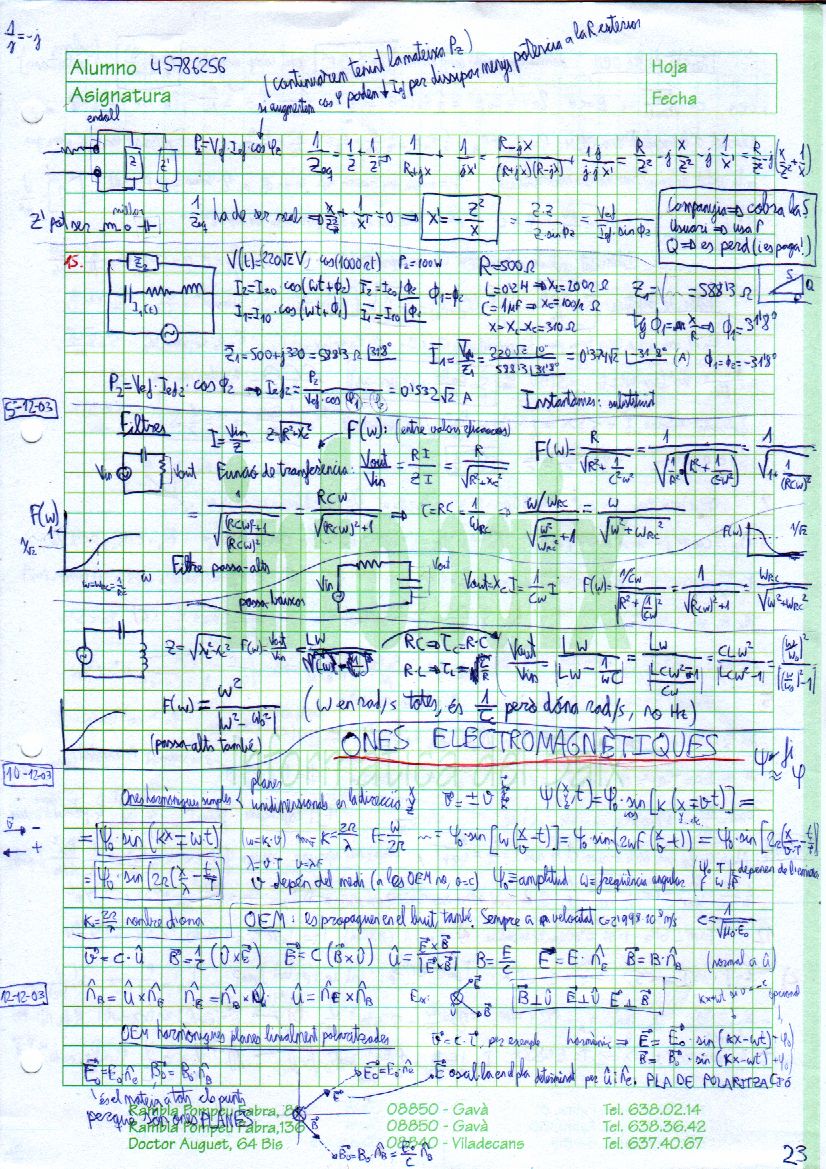 1/j = -j
Alumno 45786256
Hoja
Asignatura
Fecha
(continuarem tenint la mateixa P₂)
si augmentem cos φ podem ↓ Ief per dissipar menys potència a la R exterior
endoll
P₂=Vef·Ief cos φ₂
1/Zeq = 1/Z + 1/Z' ⇒ 1/(R+jX) + 1/(jX') = (R-jX)/((R+jX)(R-jX)) + 1·j/(j·j·X') = R/Z² - j X/Z² - j 1/X' = R/Z² - j(X/Z² + 1/X')
Z' pot ser
millor
1/Zeq ha de ser real ⇒ X/Z² + 1/X' = 0 ⇒ X' = -Z²/X
Companyia ⇒ cobra la S
Usuari ⇒ usa P
Q ⇒ es perd (i es paga!)
15.
V(t)=220√2 V, cos(1000πt) P₂=100W R=500Ω
I₂=I₂₀ cos(ωt+φ₂)
I₁=I₁₀·cos(ωt+φ₁)
φ₁=φ₂
C=1μF
I₁(t)
Z₁=√ = 588'13 Ω
tg φ₁ = X/R ⇒ φ₁=31'8°
Z₁=500+j310=588'13 Ω |31'8°
I₁ = V/Z₁ = 220√2 |0° / 588'13 |31'8° = 0'374√2 |-31'8° (A) φ₁=φ₂=-31'8°
P₂=Vef·Ief₂·cos φ₂ → Ief₂ = P₂/(Vef·cos φ₂) = 0'532√2 A
Instantànies: substituint
5-12-03
Filtres
I=Vin/Z Z=√(R²+Xc²)
F(ω): (entre valors eficaços)
Vin
Vout
Funció de transferència: Vout/Vin = RI/ZI = R/√(R²+Xc²)
F(ω) = R/√(R²+1/(C²ω²)) = 1/√(1/R²·(R²+1/(C²ω²))) = 1/√(1+1/(RCω)²)
= 1/√(((RCω)²+1)/(RCω)²) = RCω/√((RCω)²+1) ⇒ τ=RC=1/ωRC ⇒ (ω/ωRC)/√(ω²/ωRC²+1) = ω/√(ω²+ωRC²)
F(ω)
1
1/√2
ω=ωRC=1/RC
ω
Filtre passa-alts
F(ω)
1/√2
passa-baixos
Vin
Vout
Vout=Xc I=1/(Cω) I
F(ω) = (1/Cω)/√(R²+1/(Cω)²) = 1/√((RCω)²+1) = ωRC/√(ω²+ωRC²)
F(ω)=Vout/Vin
R·C ⇒ τc=R·C
Vout/Vin = Lω/|Lω-1/(ωC)| = Lω/(|LCω²-1|/Cω) = CLω²/|LCω²-1| = (ω/ω₀)²/|(ω/ω₀)²-1|
F(ω) = ω²/|ω²-ω₀²|
(ω en rad/s totes, és 1/τ però dóna rad/s, no Hz)
(passa-alts també)
ONES ELECTROMAGNÈTIQUES
10-12-03
Ψ ≈ fi φ
Ones harmòniques simples < planes
unidimensionals en la direcció x y z
v = ± v
Ψ(x,t)=Ψ₀·sin[k(x∓vt)]=
v → -
← +
= Ψ₀·sin(kx∓ωt) (ω=k·v) k=2π/λ f=ω/2π = Ψ₀·sin[ω(x/v-t)] = Ψ₀·sin(2πf(x/v-t)) = Ψ₀·sin[2π(x/(v·T)-t/T)]
= Ψ₀·sin(2π(x/λ-t/T))
λ=v·T v=λF
v depèn del medi (a les OEM no, v=c) Ψ₀≡amplitud ω=freqüència angular
k=2π/λ nombre d'ona
OEM: es propaguen en el buit, també. Sempre a velocitat c=2'998·10⁸ m/s c=1/√(μ₀·ε₀)
v=c·û B=1/c(û×E) E=c(B×û) û=E×B/|E×B| B=E/c E=E·n̂E B=B·n̂B (normal a û)
12-12-03
n̂B=û×n̂E n̂E=n̂B×û û=n̂E×n̂B
Ex:
E
û
B
B⊥û E⊥û E⊥B
kx+ωt si v=-c
OEM harmòniques planes linealment polaritzades
v=c·î, per exemple harmònic ⇒ E=E₀·sin(kx-ωt+φ₀)
B=B₀·sin(kx-ωt+φ₀)
E₀=E₀·n̂E B₀=B₀·n̂B
E₀=E₀·n̂E
E oscil·la en el pla determinat per û i n̂E. PLA DE POLARITZACIÓ
és el mateix a tots els punts
perquè són ones PLANES
E
B
B₀=B₀·n̂B=E₀/c n̂B
Rambla Pompeu Fabra, 8 08850 - Gavà Tel. 638.02.14
Rambla Pompeu Fabra, 136 08850 - Gavà Tel. 638.36.42
Doctor Auguet, 64 Bis 08840 - Viladecans Tel. 637.40.67
23